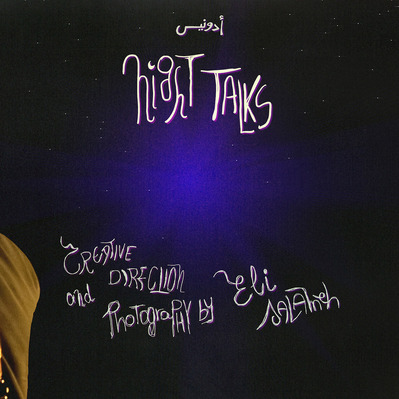 أدونيس
Night TALKS
CREATIVE
DIRECTION
and Photography by Eli
SALAMEH